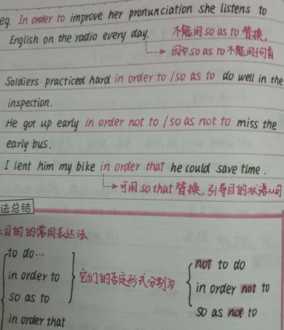 eg. In order to improve her pronunciation she listens to
English on the radio every day. 不能用so as to替换,
因为so as to不能用于句首
Soldiers practiced hard in order to / so as to do well in the
inspection.
He got up early in order not to / so as not to miss the
early bus.
I lent him my bike in order that he could save time.
可用so that替换,引导目的状语从句
法总结
目的的常用表达法
to do...
in order to
so as to
in order that
它们的否定形式分别为
not to do
in order not to
so as not to